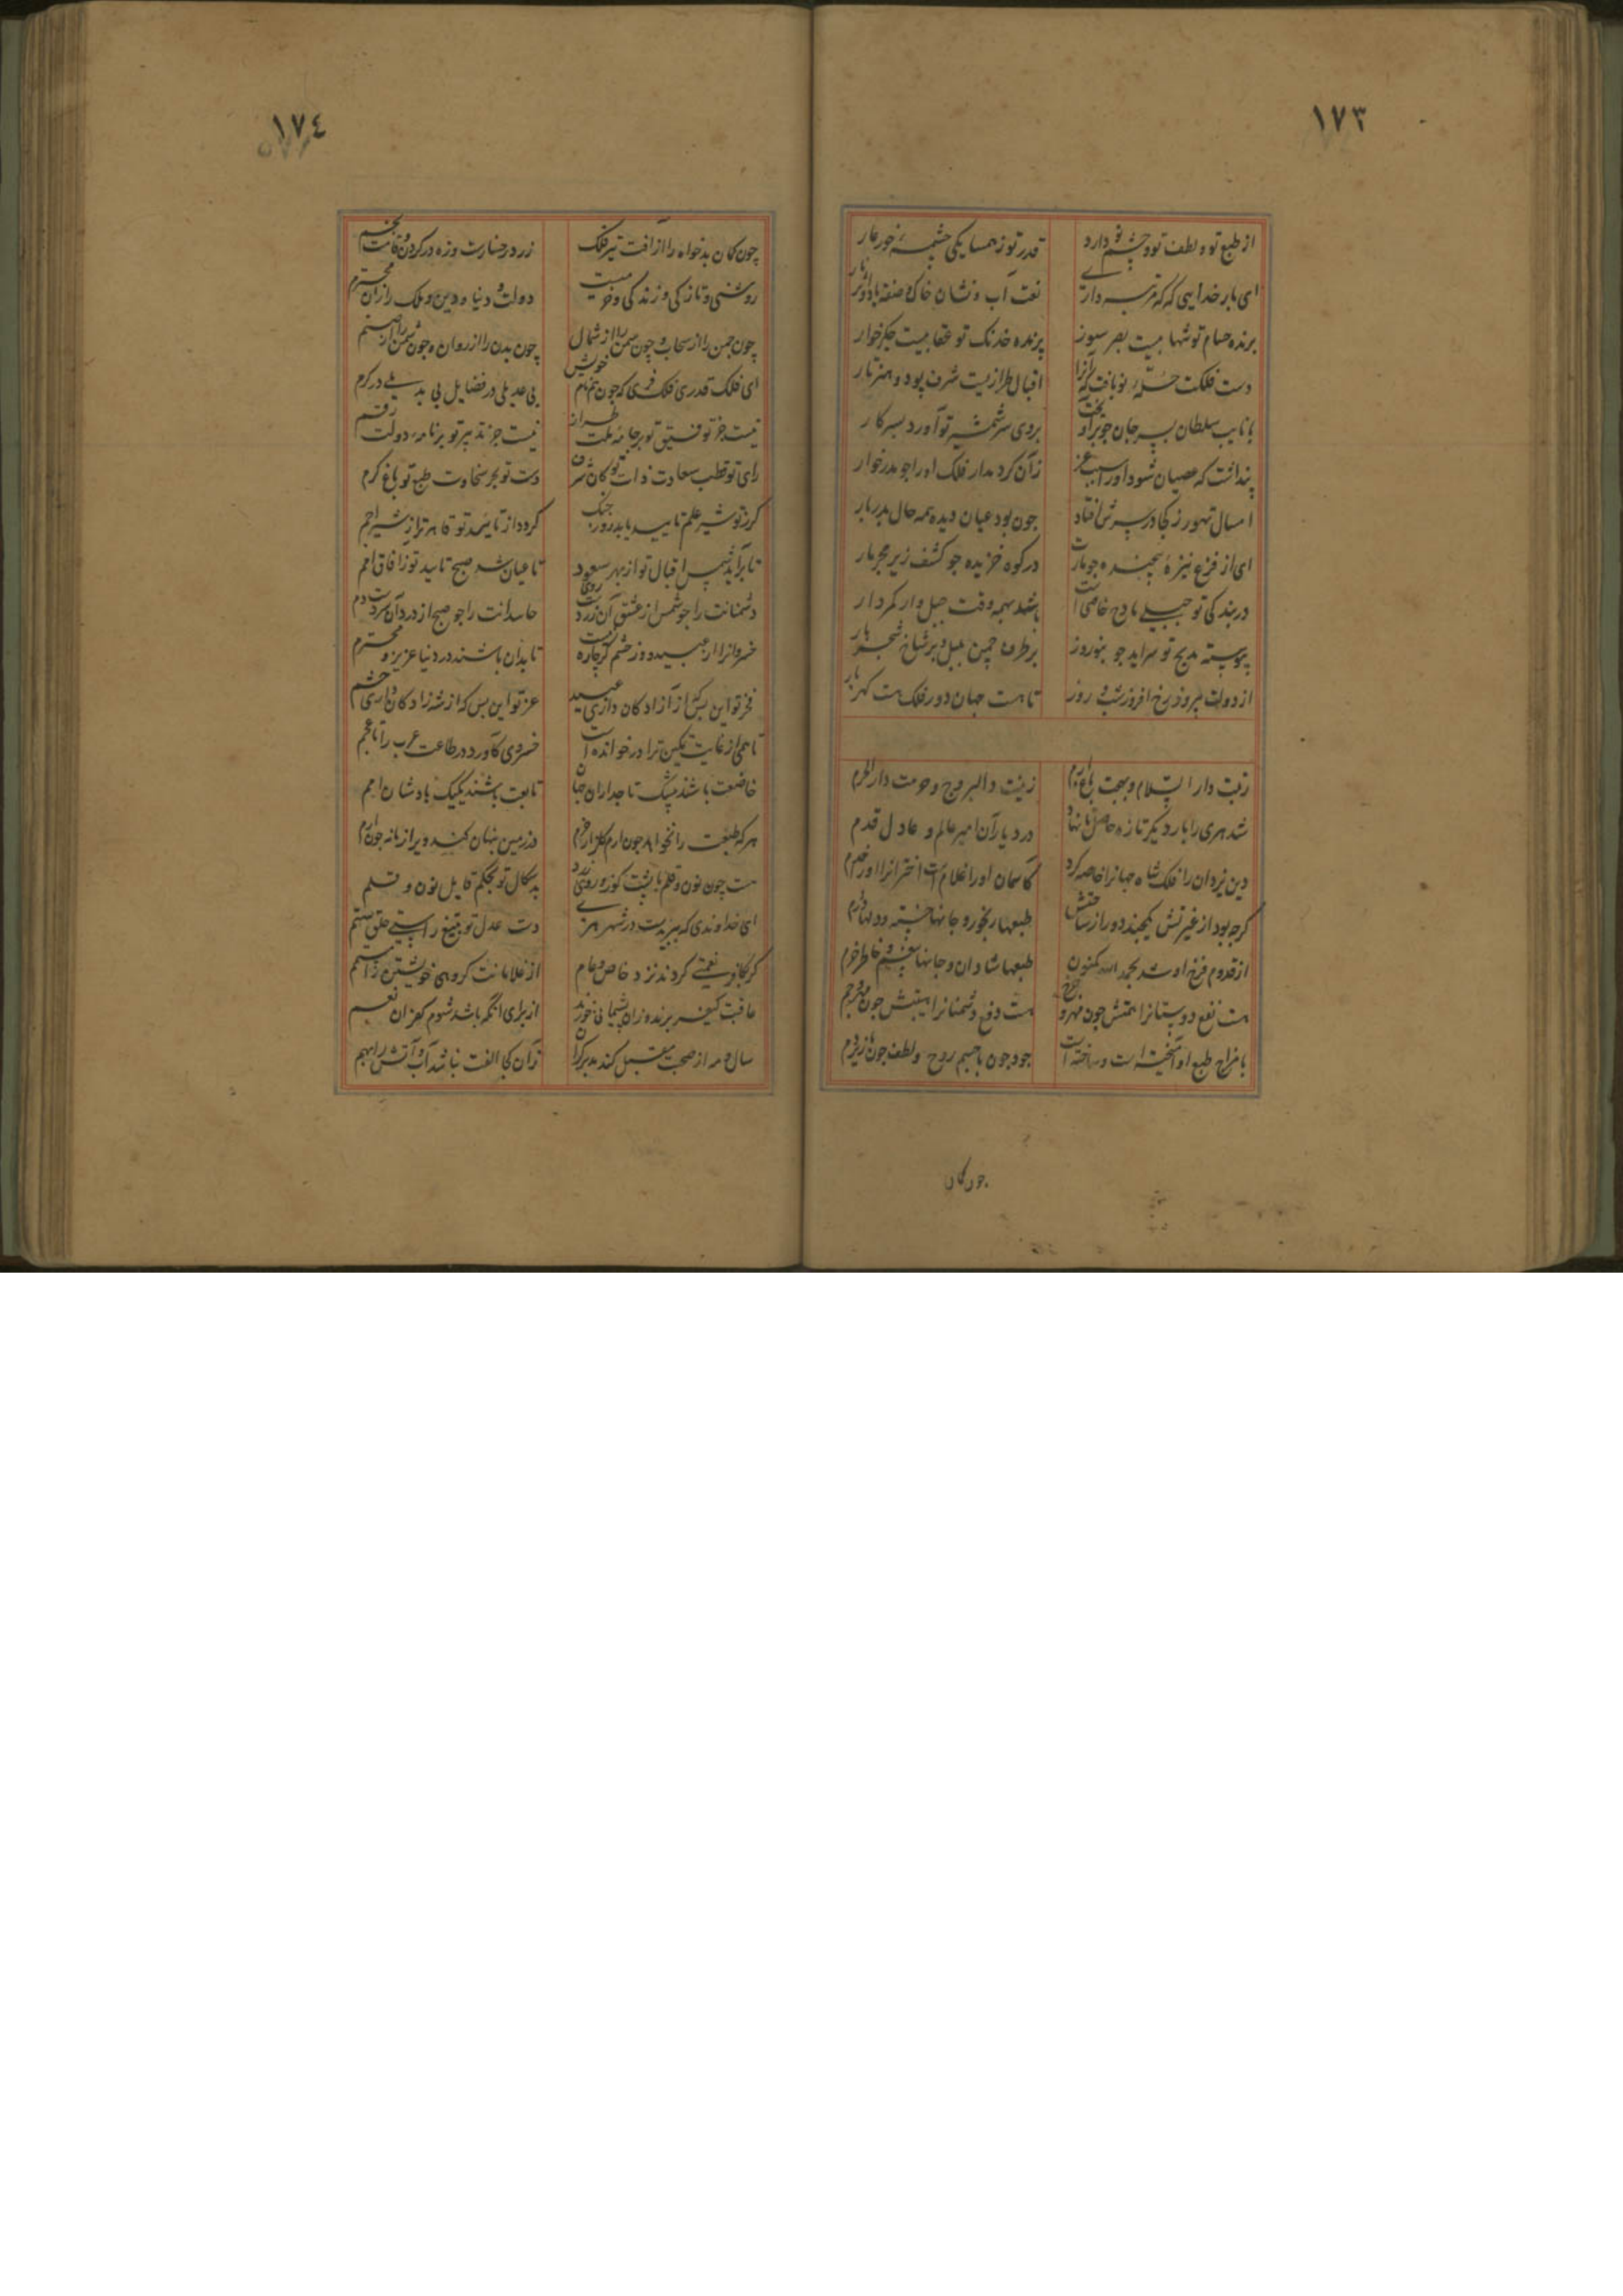 ١٧٣
از طبع تو و لطف تو و چشم تو دارد
قدر تو ز همسایگی چشمهٔ خور عار
ای بار خدایی که که مرتبه داری
نعت آب و نشان خاک و صفت باد و اثر نار
برنده حسام تو شهابیست بصر سوز
پرنده خدنگ تو عقابیست جگر خوار
دست فلکت حلهٔ نو بافت که آنرا
اقبال طرازیست شرف پود و هنر تار
با نایب سلطان پسر جان چو برآورد
بر وی سر شمشیر تو آورد بسر کار
پنداشت که عصیان شود او را سبب عز
زان کرد مدار فلک او را چو پدر خوار
امسال تهور ز کجا در سرش افتاد
چون بود عیان دیده همه حال پدر پار
ای از فزع نیزهٔ پیچنده چو مارت
در کوه خزیده چو کشف زیر حجر مار
در بندگی تو جبلی مادح خاصست
باشد همه وقت جبل وار کمردار
پیوسته مدیح تو سراید چو بنوروز
بر طرف چمن بلبل و بر شاخ شجر سار
از دولت پیروز رخ افروز شب و روز
تا هست جهان دور فلک هست گهربار
زیب دار السلام و بهجت باغ ارم
زینت دار البروج و حرمت دار الحرم
شد هری را بار دیگر تازه حاصل تا نهاد
در دیار آن امیر عالم و عادل قدم
دین یزدان را فلک شاه جهانرا خاصه کرد
کاسمان او را غلام است اخترانرا او
گرچه بود از غیبتش یکچند دور از ساحتش
طبعها رنجور و جانها خسته و دلها دژم
از قدوم فرخ او شد بحمد الله کنون
طبعها شادان و جانها بی غم و خاطر خرم
هست نفع دوستانرا همتش چون مهر و چرخ
هست دفع دشمنانرا هیبتش چون
با مزاج طبع او آمیخته است و ساخته است
جود چون با جسم روح و لطف چون با زیر و بم
چون کمان
١٧٤
چون کمان بدخواه را از آفت تیر فلک
زرد رخسارست و زه در گردن و قامت بخم
روشنی و تازگی و زندگی و خرمیست
دولت و دنیا و دین و ملک را زان محترم
چون چمن را از سحاب و چون سمن را از شمال
چون بدن را از روان و چون شمن را از صنم
ای فلک قدری فلک فری که چون هم نام خویش
بی عدیلی در فضایل بی بدیلی در کرم
نیست جز توفیق تو بر جامهٔ ملت طراز
نیست جز تدبیر تو بر نامهٔ دولت رقم
رای تو قطب سعادت ذات تو کان شرف
دست تو بحر سخاوت طبع تو باغ کرم
گر ز تو شیر علم تایید یابد روز جنگ
گردد از تایید تو قاهرتر از شیر اجم
تا برآید شمس اقبال تو از بهر سعود
تا عیان شد صبح تایید تو ز آفاق امم
دشمنانت را چو شمس از عشق آن زردست روی
حاسدانت را چو صبح از درد آن سردست دم
خسروانرا از عبید و وز خشم گرچاره نیست
تا بدان باشند در دنیا عزیز و محترم
فخر تو این بس که از آزادگان داری عبید
عز تو این بس که از شه زادگان داری حشم
تا همی از غایت تمکین ترا در خوانده است
خسروی کاورد در طاعت عرب را با عجم
خاضعت باشند بیشک تاجداران جهان
تابعت باشند یکیک پادشاهان امم
هر که طبعت را نخواهد چون ارم گلزار خرم
در زمین پنهان کند ویرا زمانه چون ارم
هست چون نون و قلم با پشت کوز و روی زرد
بد سگال تو بحکم قایل نون و قلم
ای خداوندی که ببریدست در شهر هری
دست عدل تو بتیغ راستی حلق ستم
گر کافر نعمتی کردند نزد خاص و عام
از غلامانت گروهی خویشتن را متهم
عاقبت کیفر برند و زان پشیمانی خورند
از برای آنکه باشد شوم کفران نعم
سال و مه از صحبت مقبل کند مدبر کران
زان کجا الفت نباشد آب و آتش را بهم